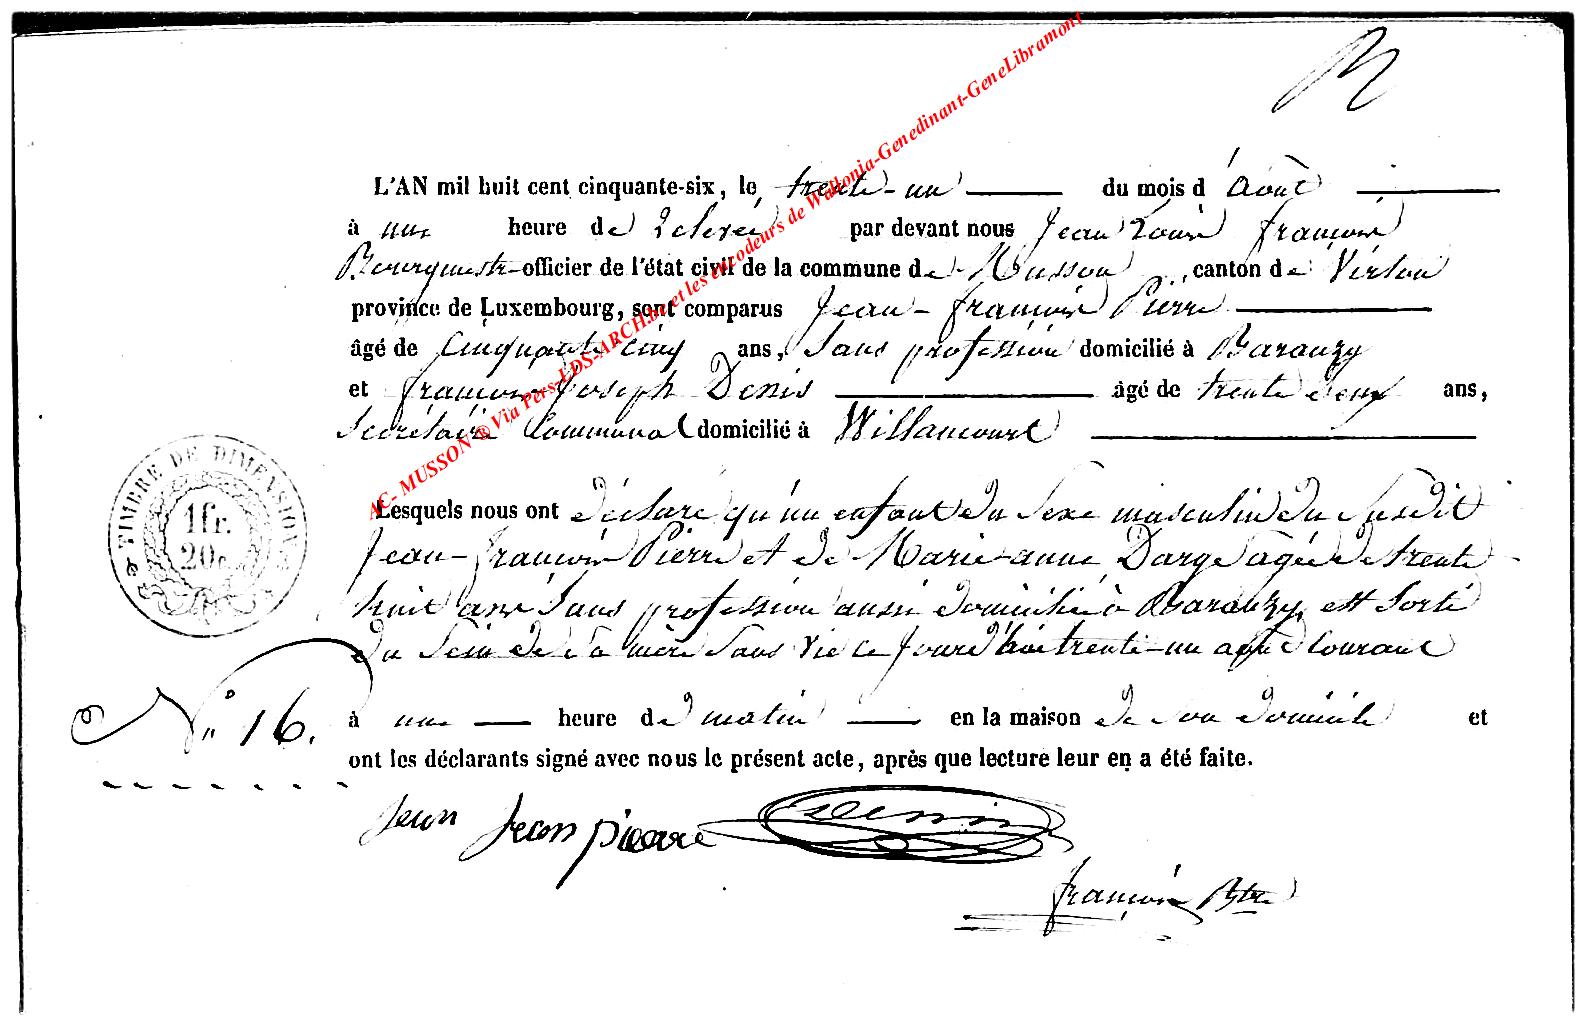 L'AN mil huit cent cinquante-six, le trente-un du mois d'août
à une heure de relevée par devant nous Jean Louis François
Bourgmestre officier de l'état civil de la commune de Musson, canton de Virton
province de Luxembourg, sont comparus Jean-François Pierre
âgé de cinquante cinq ans, sans profession domicilié à Baranzy
et François Joseph Denis âgé de trente deux ans,
Secrétaire Communal domicilié à Willancourt
Lesquels nous ont déclaré qu'un enfant du Sexe masculin du susdit
Jean-François Pierre et de Marie-anne Darge agée de trente
huit ans Sans profession aussi domiciliée à Baranzy, est sorti
du sein de sa mère sans vie ce jourd'hui trente-un août courant
à une heure de matin en la maison de son domicile et
ont les déclarants signé avec nous le présent acte, après que lecture leur en a été faite.
TIMBRE DE DIMENSION
1fr.
20c.
No 16.
Jean Jean pierre Denis
françois Btre
AC- MUSSON ® Via Pers-LDS-ARCH.be et les encodeurs de Wallonia-Genedinant-GeneLibramont